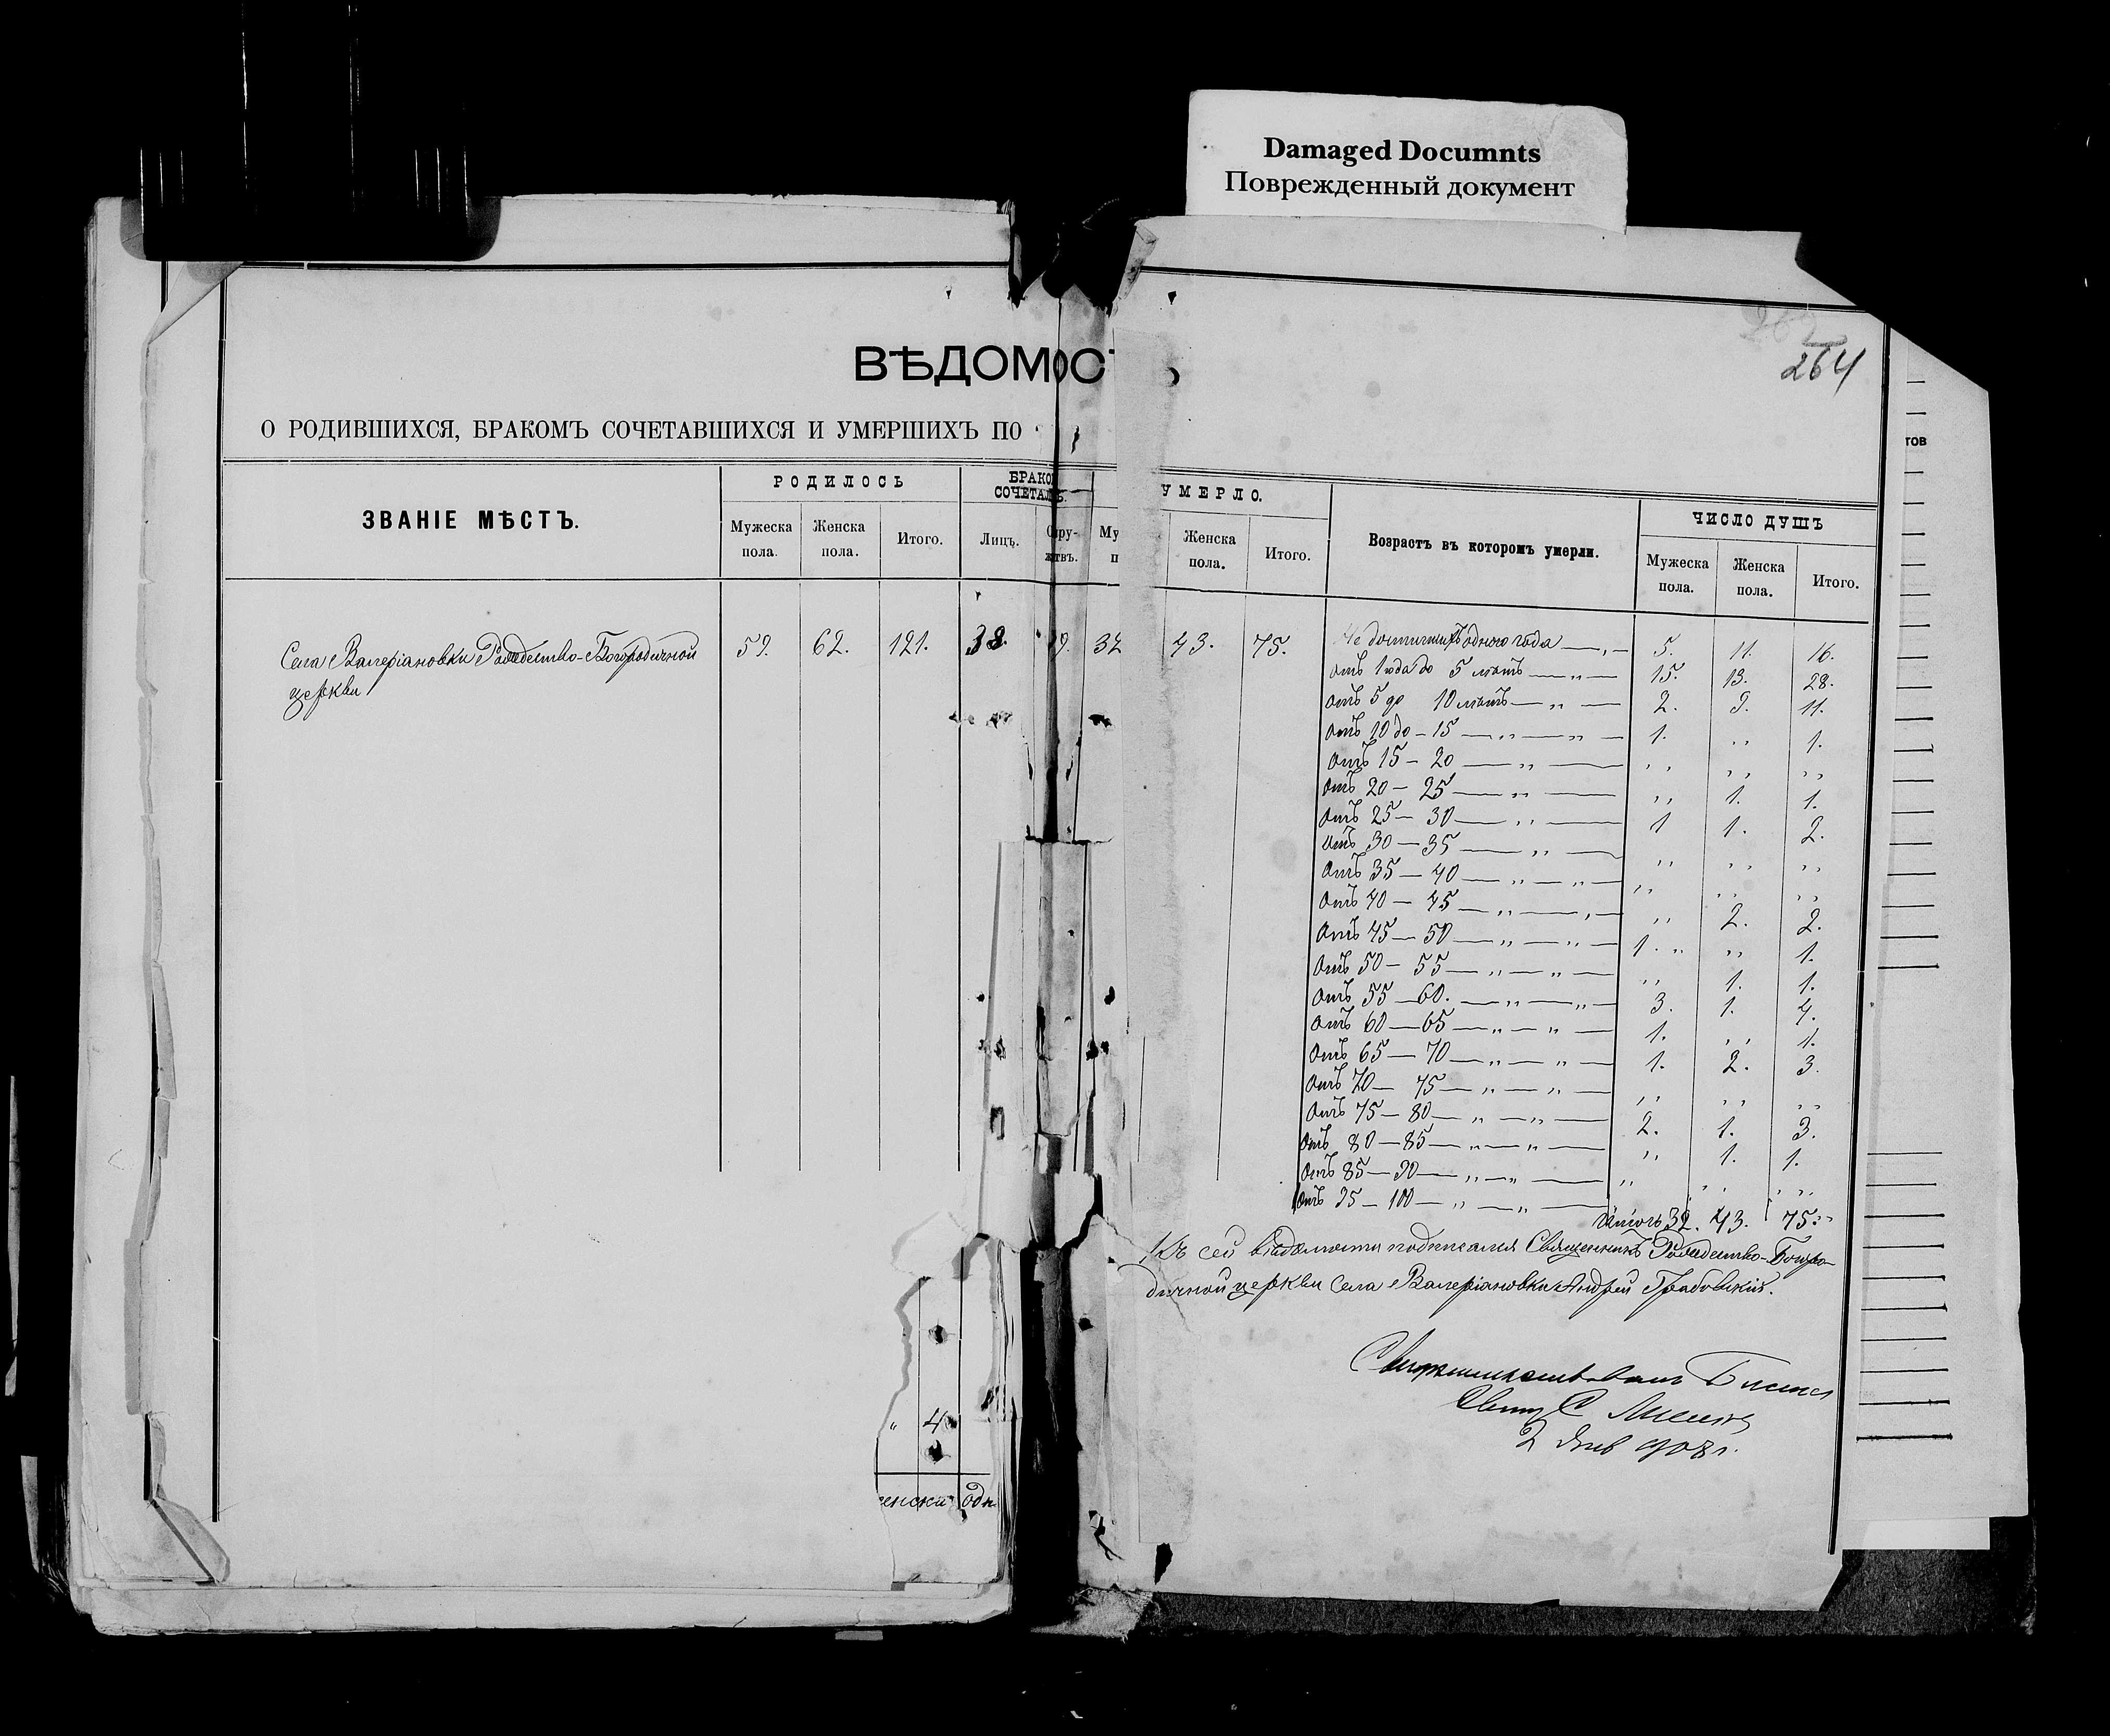 Damaged Documnts
Поврежденный документ
264
ВѢДОМОС
О РОДИВШИХСЯ, БРАКОМЪ СОЧЕТАВШИХСЯ И УМЕРШИХЪ ПО
ЗВАНІЕ МѢСТЪ. РОДИЛОСЬ БРАКО СОЧЕТАЛ. УМЕРЛО. Возрастъ въ которомъ умерли. ЧИСЛО ДУШЪ
Мужеска пола. Женска пола. Итого. Лицъ. Му Женска пола. Итого. Мужеска пола. Женска пола. Итого.
тов
Села Валеріановки Рождество-Богородичной 59. 62. 121. 38. 9. 32 43. 75.
церкви
Не достигшихъ одного года — „ — 5. 11. 16.
отъ 1 года до 5 лѣтъ — „ — 15. 13. 28.
отъ 5 до 10 лѣтъ — „ — 2. 9. 11.
отъ 10 до – 15 — „ — „ — 1. „ 1.
отъ 15 – 20 — „ — „ „ „
отъ 20 – 25 — „ — „ 1. 1.
отъ 25 – 30 — „ — 1 1. 2.
отъ 30 – 35 — „ — „ „ „
отъ 35 – 40 — „ — „ — „ „ „
отъ 40 – 45 — „ — „ — „ 2. 2.
отъ 45 – 50 — „ — „ — 1. „ „ 1.
отъ 50 – 55 — „ — „ — „ 1. 1.
отъ 55 – 60. — „ — „ — 3. 1. 4.
отъ 60 – 65 — „ — „ — 1. „ 1.
отъ 65 – 70 — „ — „ — 1. 2. 3.
отъ 70 – 75 — „ — „ — „ „ „
отъ 75 – 80 — „ — „ — 2. 1. 3.
отъ 80 – 85 — „ — „ — „ 1. 1.
отъ 85 – 90 — „ — „ — „ „ „
отъ 95 – 100 — „ — „ —
Итого 32. 43. 75.
Къ сей вѣдомости подписался Священникъ Рождество-Богоро-
дичной церкви Села Валеріановки Андрей Грабовскій.
2 Янв 908 г.
„ 4